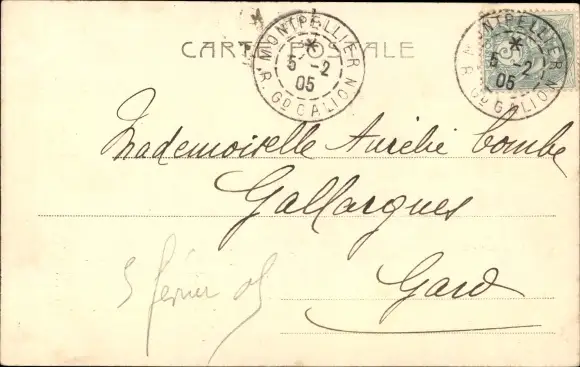 CARTE POSTALE
MONTPELLIER
5 -2
05
R. Gᴅ GALION
MONTPELLIER
5 -2
05
R. Gᴅ GALION
Mademoiselle Aurélie Combe
Gallargues
Gard
5 février 05